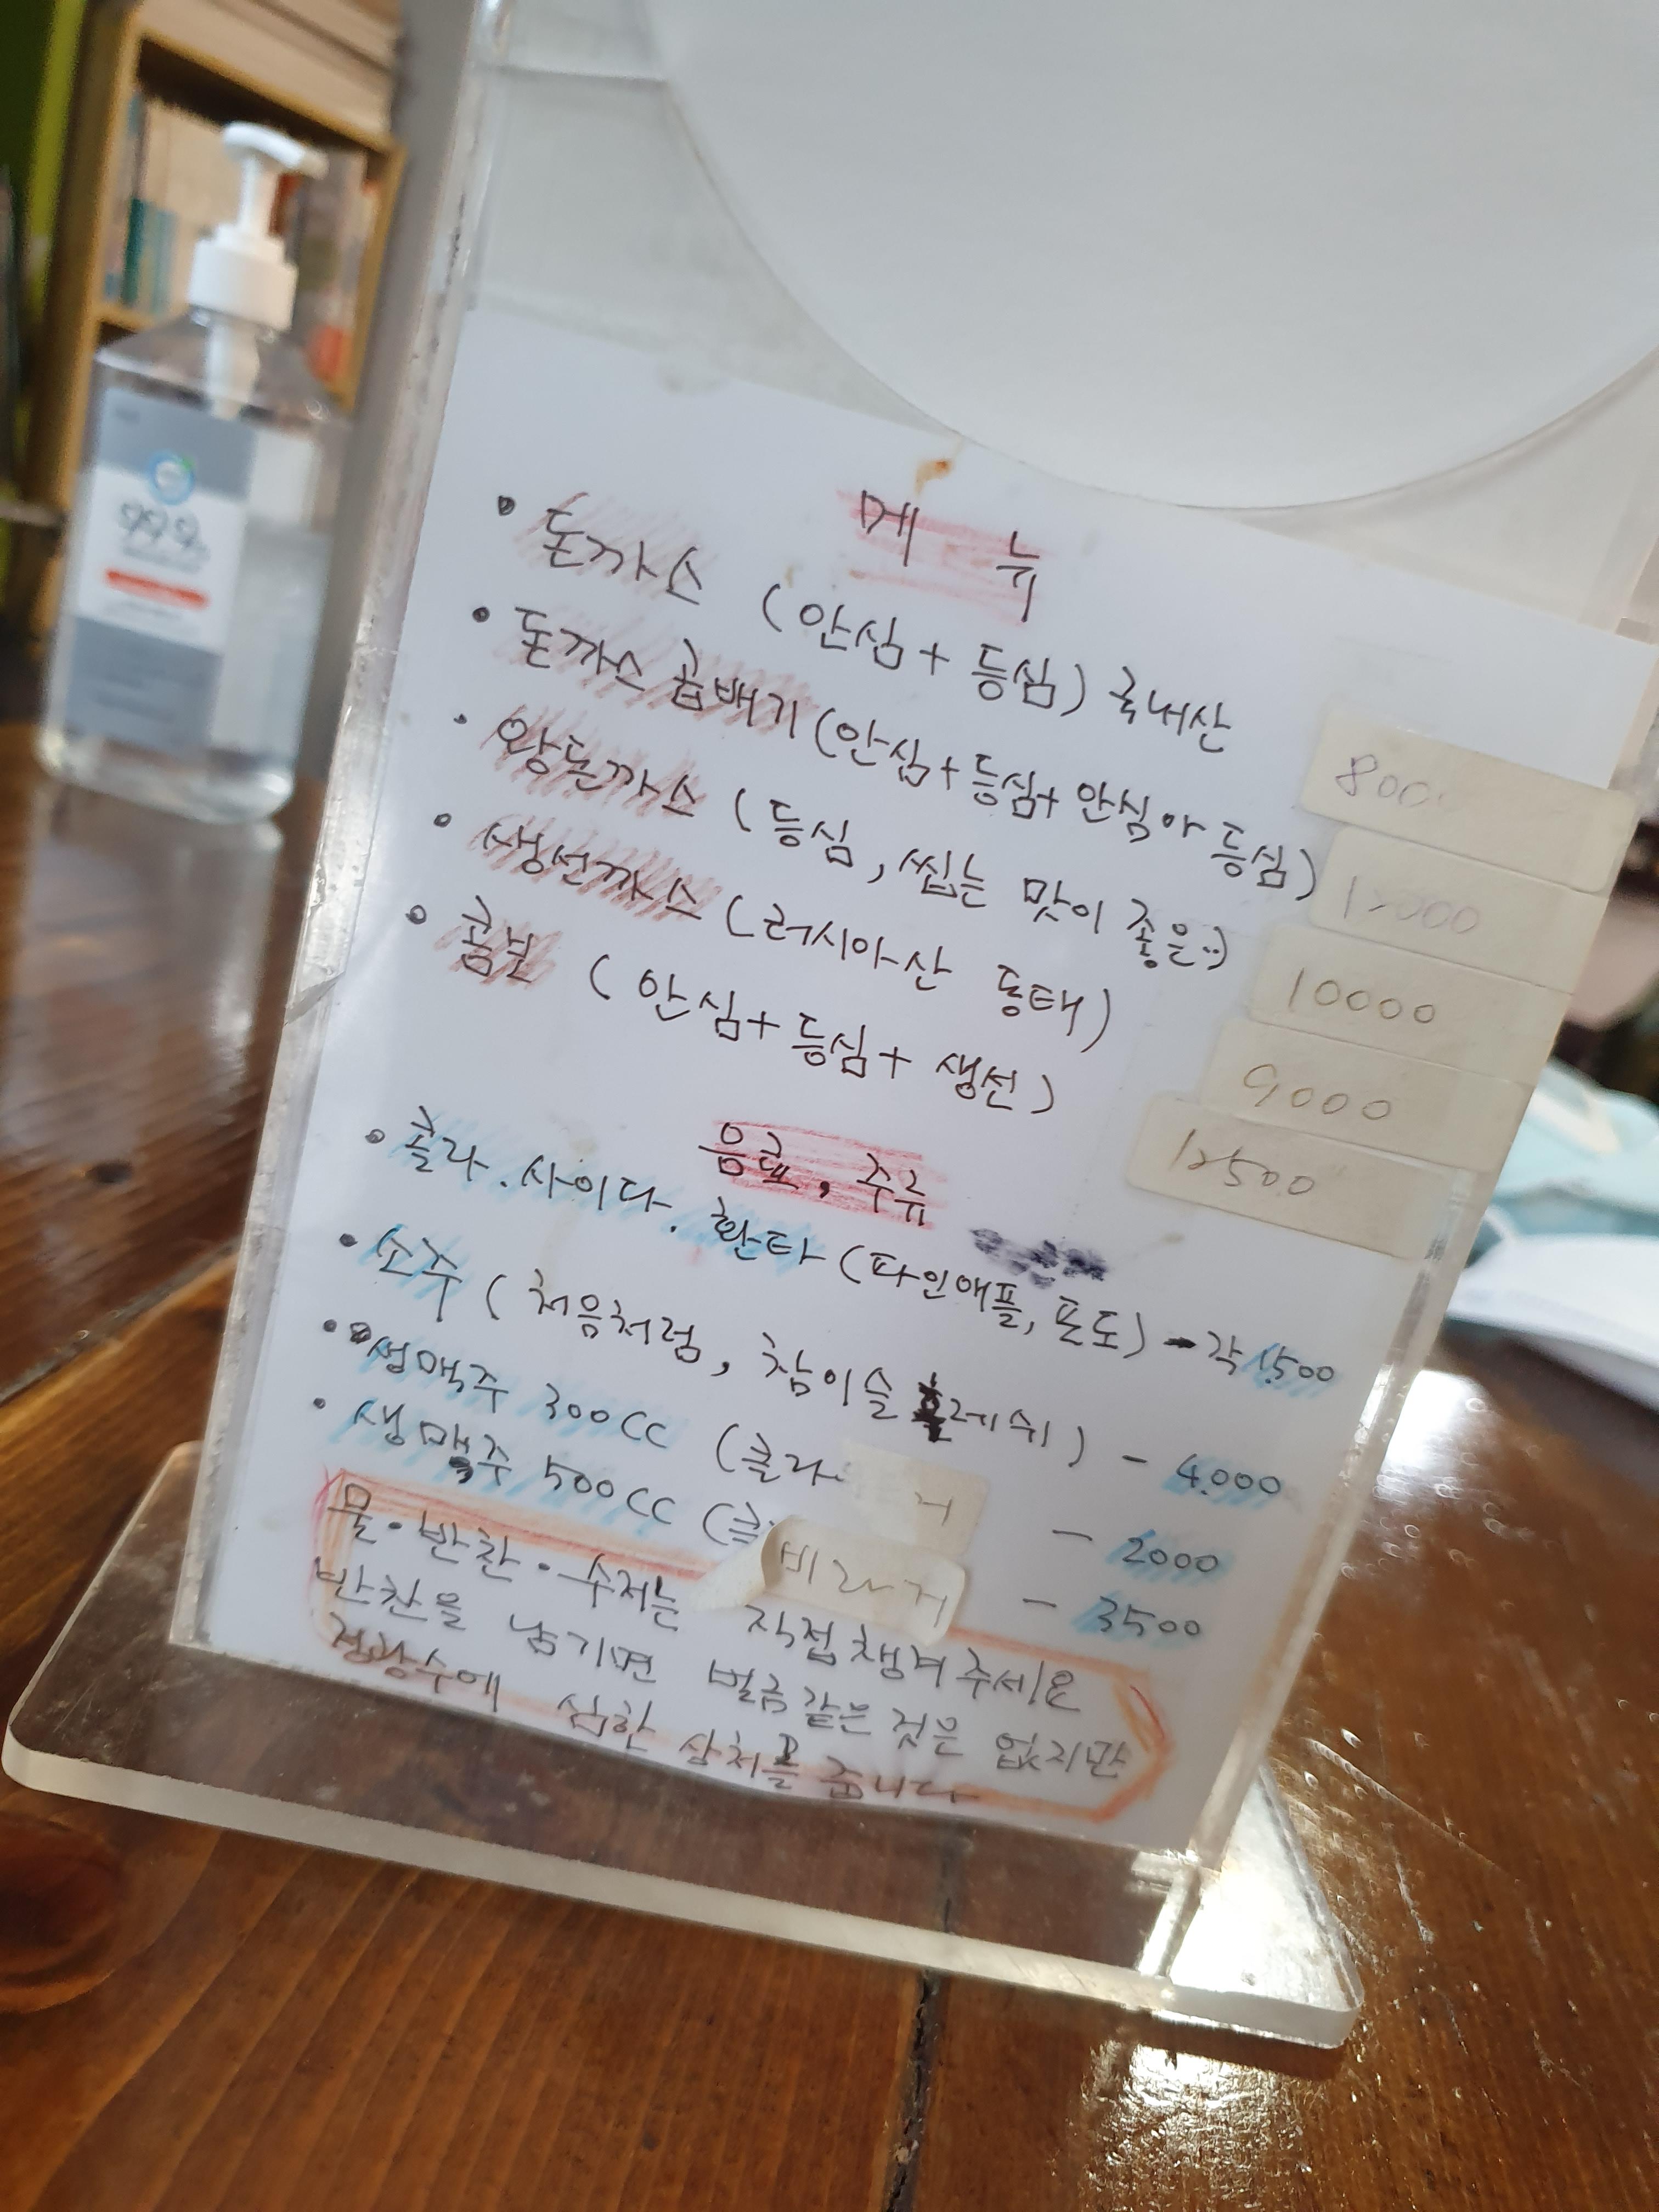 메뉴
• 돈까스 (안심+등심) 국내산 800
• 돈까스 곱배기 (안심+등심+안심아등심) 12000
• 왕돈까스 (등심, 씹는 맛이 좋은..) 10000
• 생선까스 (러시아산 동태) 9000
• 콤보 (안심+등심+생선) 12500
음료, 주류
• 콜라.사이다.환타 (파인애플, 포도) - 각 1,500
• 소주 (처음처럼, 참이슬 후레쉬) - 4,000
• 생맥주 300CC (클라 거 - 2000
• 생맥주 500CC (클 비라거 - 3500
물.반찬.수저는 직접 챙겨 주세요
반찬을 남기면 벌금같은 것은 없지만
정광수에 심한 상처를 줍니다
99.9